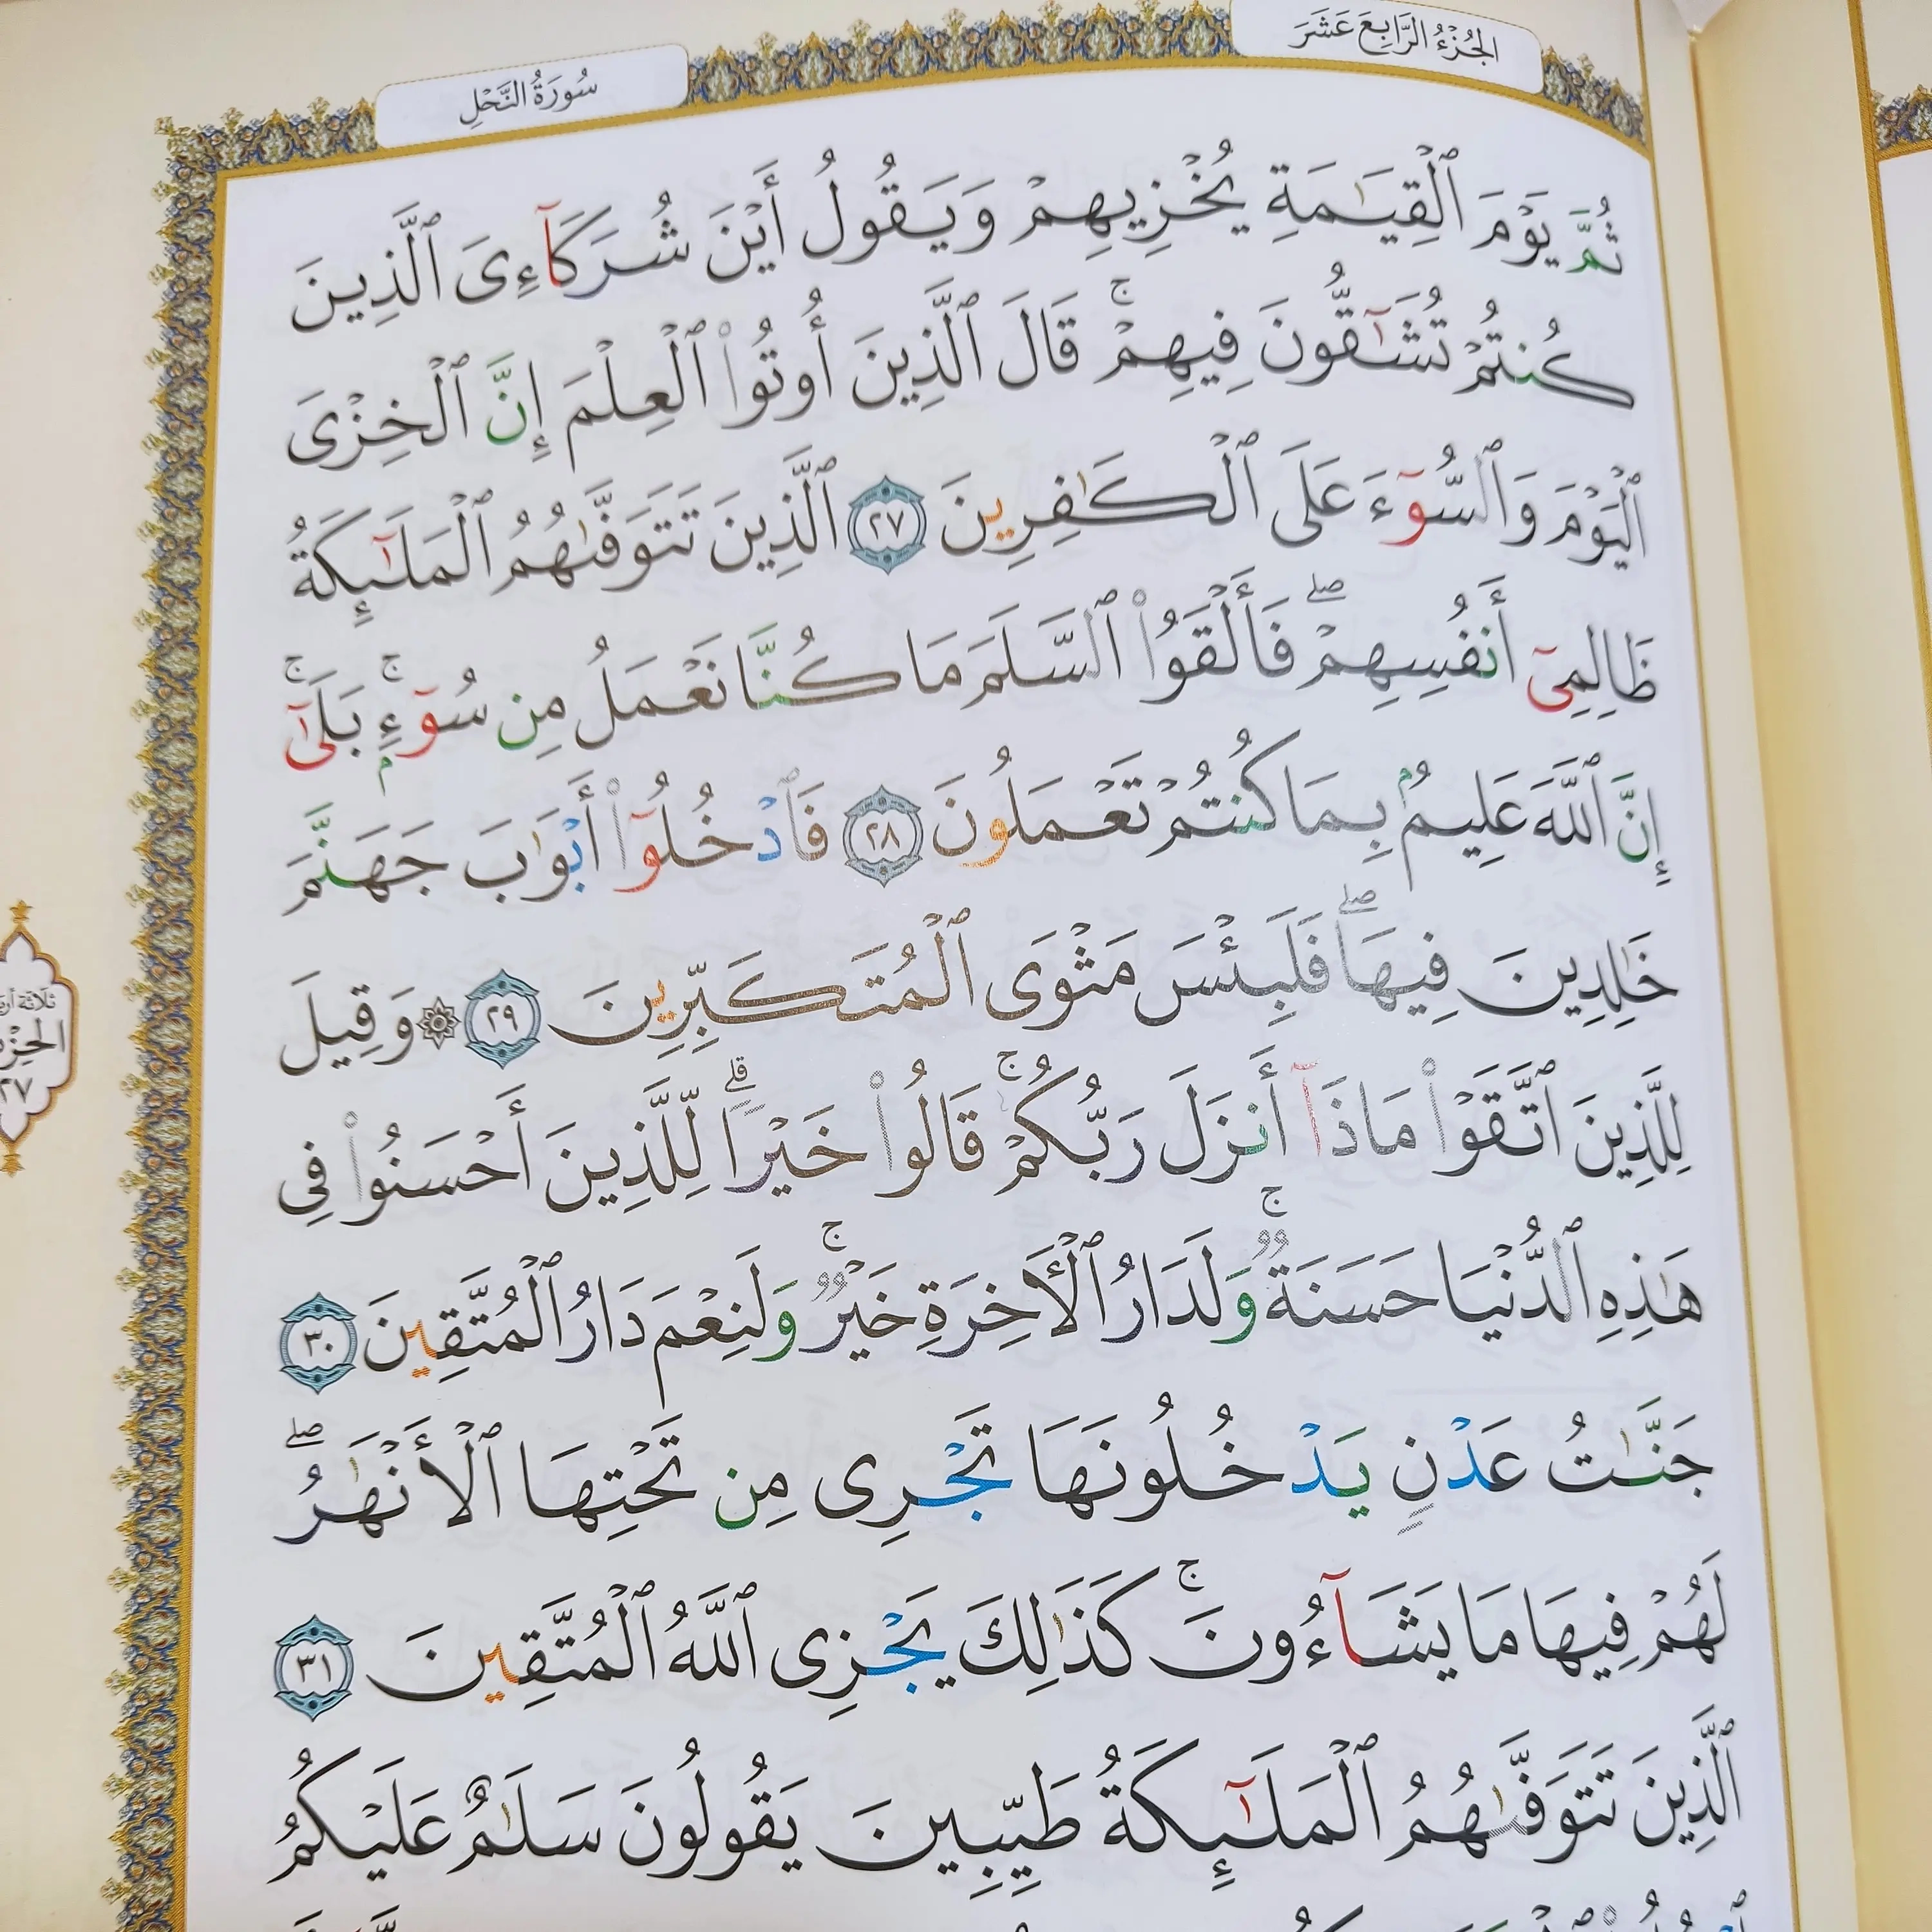 الجُزْءُ الرَّابِعَ عَشَرَ
سُورَةُ النَّحْلِ
ثُمَّ يَوْمَ ٱلْقِيَـٰمَةِ يُخْزِيهِمْ وَيَقُولُ أَيْنَ شُرَكَآءِىَ ٱلَّذِينَ
كُنتُمْ تُشَـٰٓقُّونَ فِيهِمْ ۚ قَالَ ٱلَّذِينَ أُوتُوا۟ ٱلْعِلْمَ إِنَّ ٱلْخِزْىَ
ٱلْيَوْمَ وَٱلسُّوٓءَ عَلَى ٱلْكَـٰفِرِينَ ٢٧ ٱلَّذِينَ تَتَوَفَّىٰهُمُ ٱلْمَلَـٰٓئِكَةُ
ظَالِمِىٓ أَنفُسِهِمْ ۖ فَأَلْقَوُا۟ ٱلسَّلَمَ مَا كُنَّا نَعْمَلُ مِن سُوٓءٍۭ ۚ بَلَىٰٓ ۚ
إِنَّ ٱللَّهَ عَلِيمٌۢ بِمَا كُنتُمْ تَعْمَلُونَ ٢٨ فَٱدْخُلُوٓا۟ أَبْوَٰبَ جَهَنَّمَ
خَـٰلِدِينَ فِيهَا ۖ فَلَبِئْسَ مَثْوَى ٱلْمُتَكَبِّرِينَ ٢٩ ۞ وَقِيلَ
لِلَّذِينَ ٱتَّقَوْا۟ مَاذَآ أَنزَلَ رَبُّكُمْ ۚ قَالُوا۟ خَيْرًا ۗ لِّلَّذِينَ أَحْسَنُوا۟ فِى
هَـٰذِهِ ٱلدُّنْيَا حَسَنَةٌ ۚ وَلَدَارُ ٱلْـَٔاخِرَةِ خَيْرٌ ۚ وَلَنِعْمَ دَارُ ٱلْمُتَّقِينَ ٣٠
جَنَّـٰتُ عَدْنٍ يَدْخُلُونَهَا تَجْرِى مِن تَحْتِهَا ٱلْأَنْهَـٰرُ ۖ
لَهُمْ فِيهَا مَا يَشَآءُونَ ۚ كَذَٰلِكَ يَجْزِى ٱللَّهُ ٱلْمُتَّقِينَ ٣١
ٱلَّذِينَ تَتَوَفَّىٰهُمُ ٱلْمَلَـٰٓئِكَةُ طَيِّبِينَ يَقُولُونَ سَلَـٰمٌ عَلَيْكُمُ